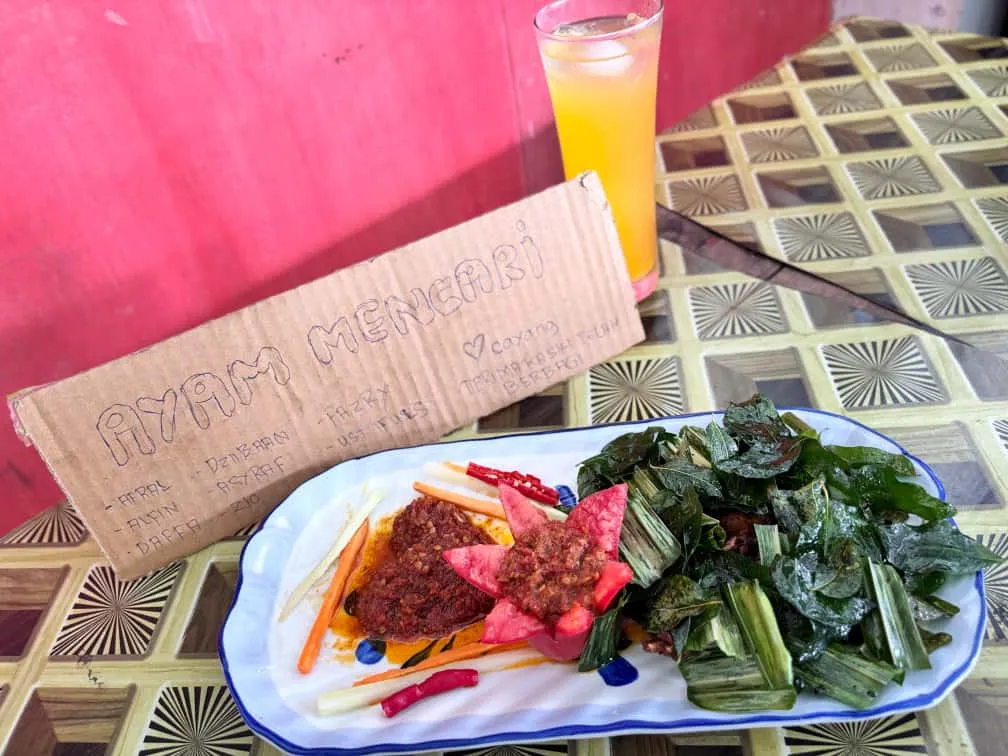 AYAM MENCARI
- AFRAL
- ALFIN
- DAFFA
- DZIBRAN
- ASYRAF
- ZIO
- FAZRY
- UST IFUES
♡ cayang
TERIMAKASIH TELAH
BERBAGI